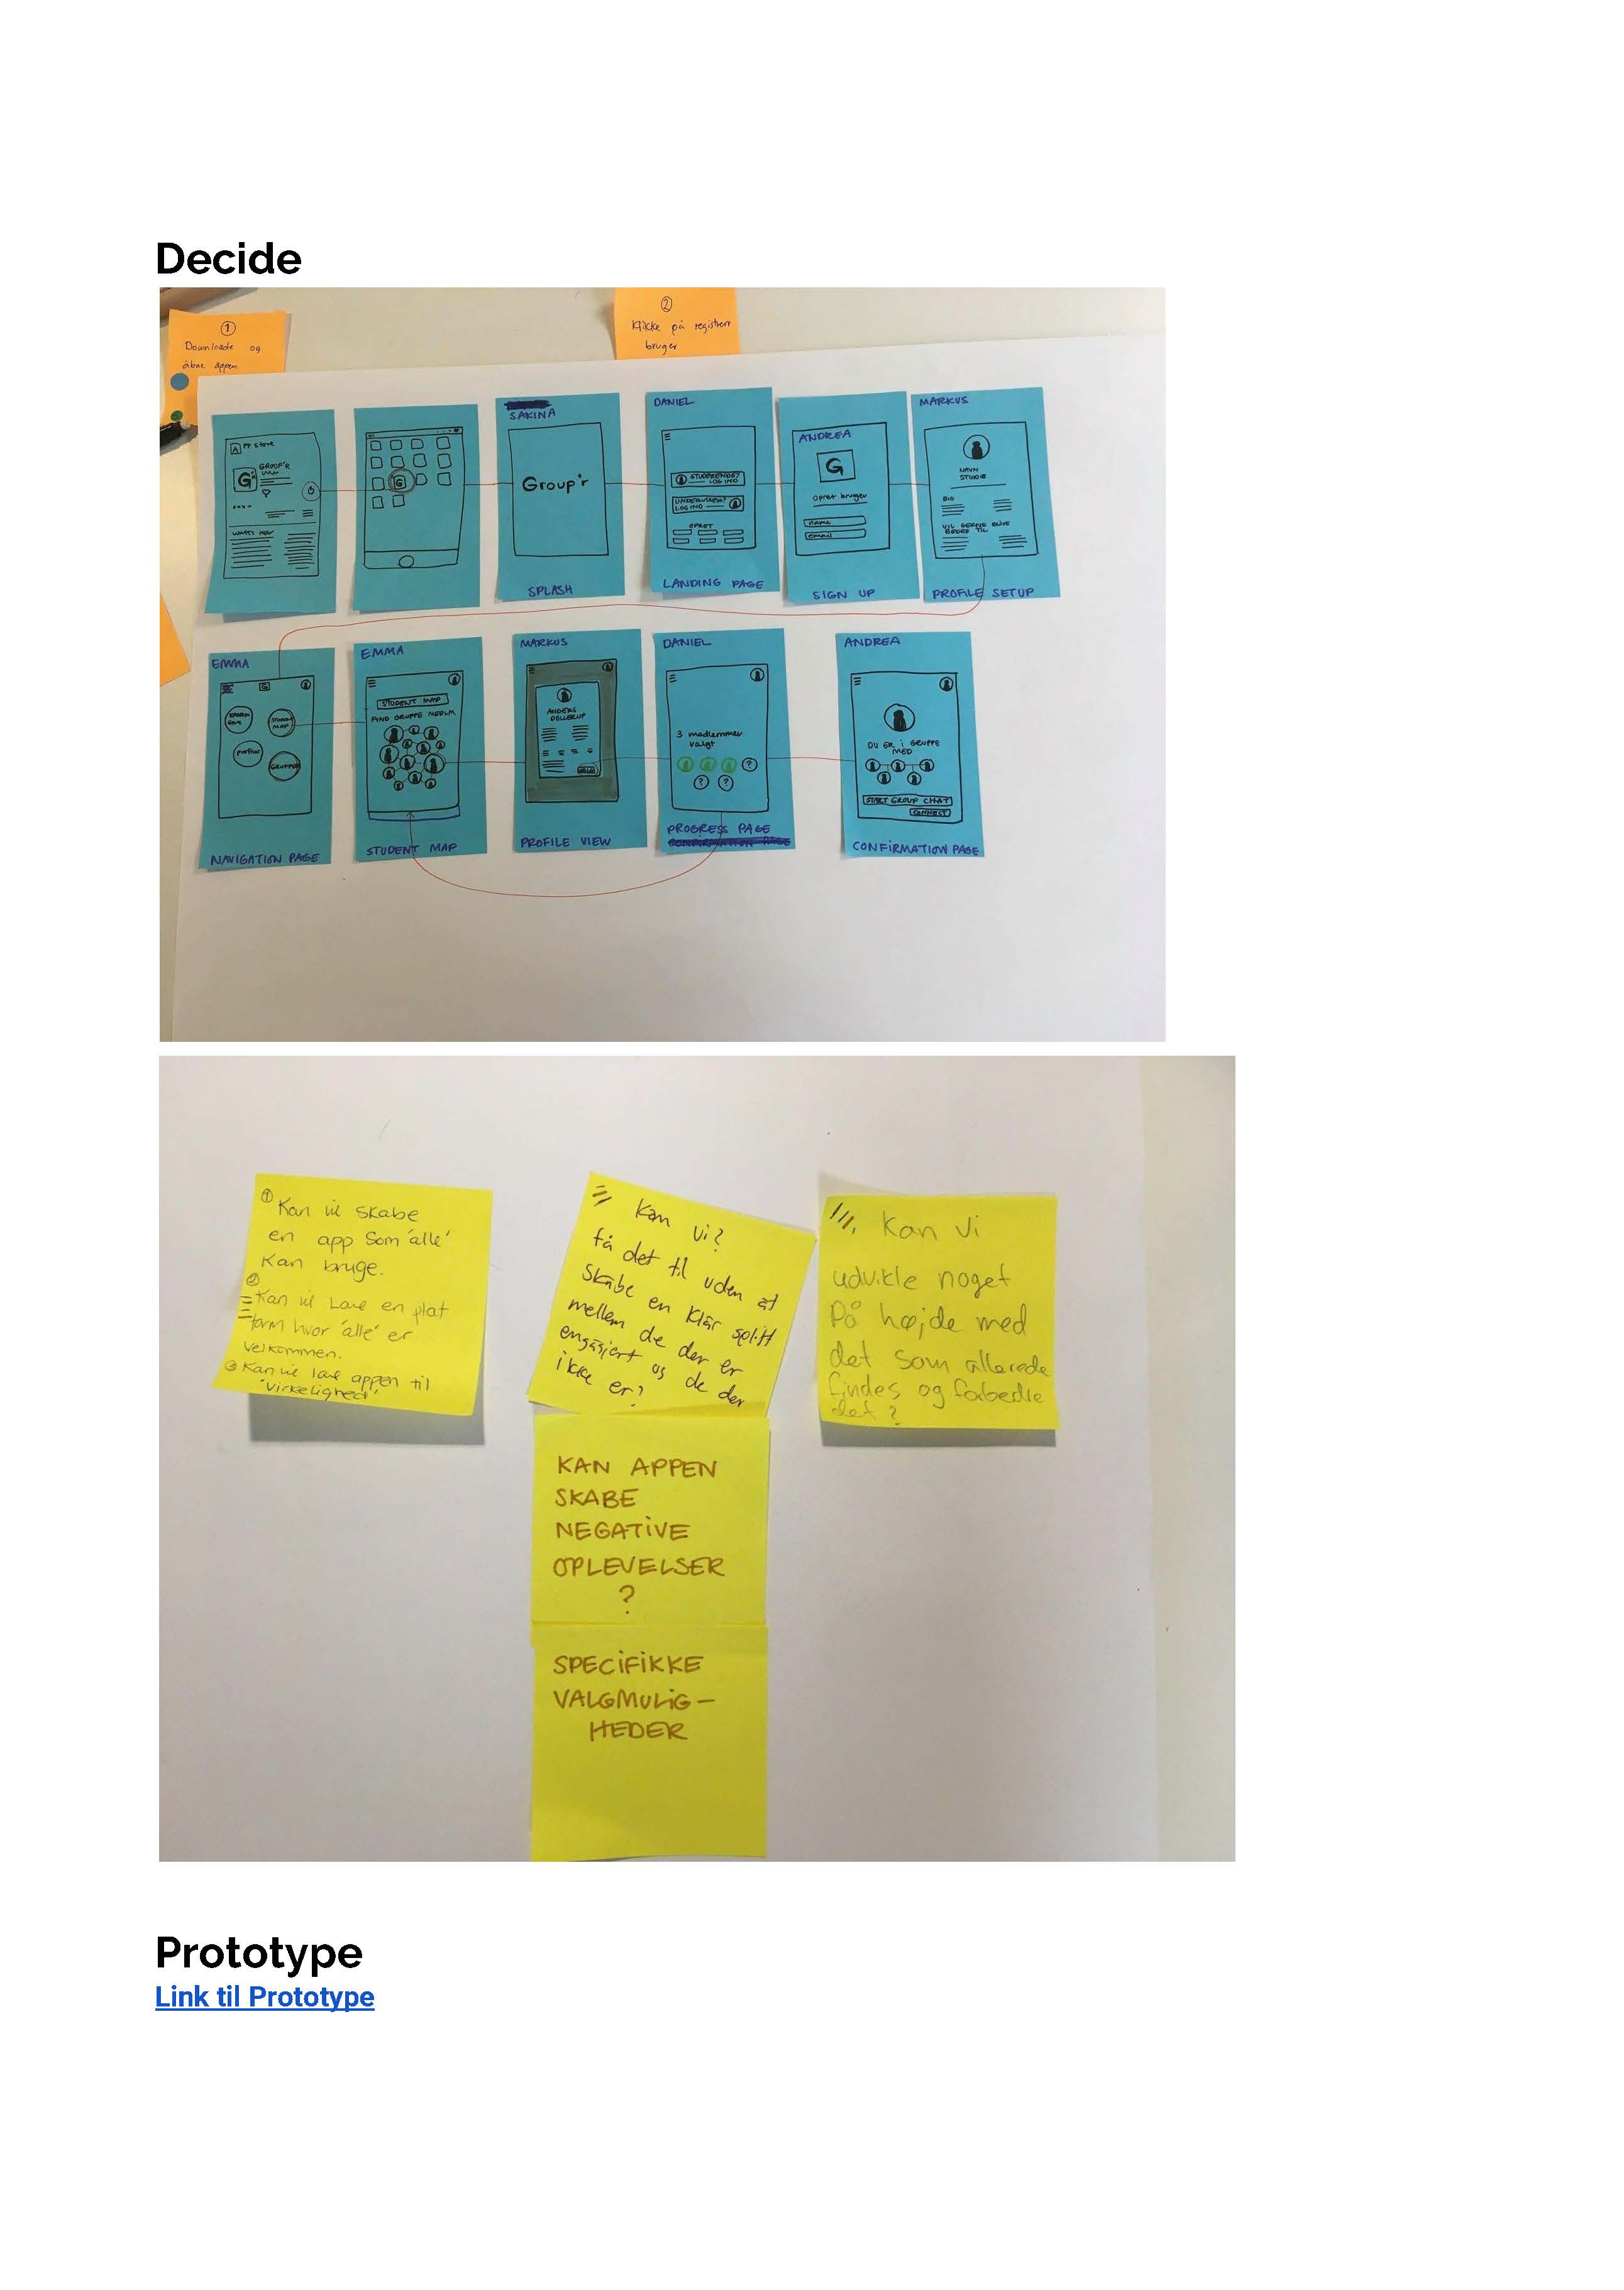 Decide
①
Downloade og
åbne appen
②
Klikke på registrer
bruger
App Store
GROUP'R
G
WHATS NEW
G
SAKINA
Group'r
SPLASH
DANIEL
STUDERENDE?
LOG IND
UNDERVISER?
LOG IND
OPRET
LANDING PAGE
ANDREA
G
Opret bruger
name
email
SIGN UP
MARKUS
NAVN
STUDIE
BIO
VIL GERNE BLIVE
BEDRE TIL
PROFILE SETUP
EMMA
G
STUDENT
MAP
profiler
GRUPPER
NAVIGATION PAGE
EMMA
STUDENT MAP
FIND GRUPPE MEDLM
STUDENT MAP
MARKUS
ANDERS
DOLLERUP
PROFILE VIEW
DANIEL
3 medlemmer
valgt
?
? ?
PROGRESS PAGE
CONFIRMATION PAGE
ANDREA
DU ER I GRUPPE
MED
START GROUP CHAT
CONNECT
CONFIRMATION PAGE
① Kan vi skabe
en app som 'alle'
kan bruge.
②
Kan vi lave en plat
form hvor 'alle' er
velkommen.
③ Kan vi lave appen til
'virkelighed'
Kan vi?
få det til uden at
skabe en klar split
mellem de der er
engagiert og de der
ikke er?
Kan vi
udvikle noget
På højde med
det som allerede
findes og forbedre
det?
KAN APPEN
SKABE
NEGATIVE
OPLEVELSER
?
SPECIFIKKE
VALGMULIG-
HEDER
Prototype
Link til Prototype